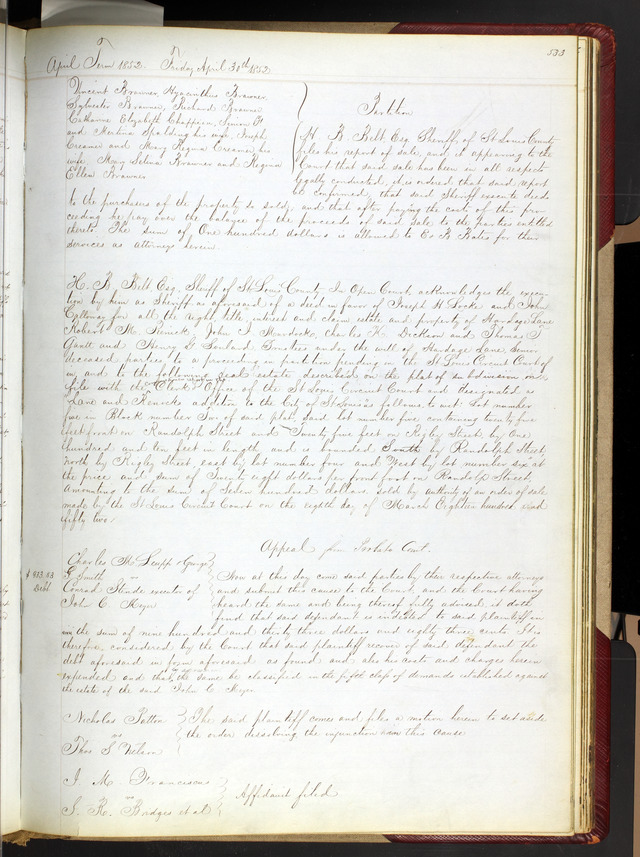 533
April Term 1852. Friday April 30th 1852
Vincent Brawner, Hyacinthus Brawner,
Sylvester Brawner, Richard Brawner
Catharine Elizabeth Chappian, Simon P
and Martina Spalding his wife Joseph
Creamer and Mary Regina Creamer his
wife, Mary Selina Brawner and Regina
Ellen Brawner
Partition
H. B. Belt, Esq. Sheriff of St Louis County
files his report of sale, and it appearing to the
Court that said sale has been in all respects
legally conducted, it is ordered that said report
be confirmed, that said Sheriff execute deeds
to the purchasers of the property so sold, and that after paying the cost of this pro-
ceeding he pay over the balance of the proceeds of said sale, to the parties entitled
thereto. The sum of One hundred dollars is allowed to E & B Bates for their
services as attorneys herein.
H. B. Belt Esq. Sheriff of St Louis County In Open Court, acknowledges the execu-
tion by him as Sheriff as aforesaid of a deed in favor of Joseph H Locke and John
Calloway for all the right title interest and claim estate and property of Hardage Lane
Robert M. Renick, John I. Murdock, Charles K. Dickson and Thomas T
Gantt and Henry G. Soulard, Trustees under the will of Hardage Lane Senior
deceased parties to a proceeding in partition pending in the St Louis Circuit Court of
in and to the following real estate described on the plat of subdivision on
file with the Clerk's office of the St Louis Circuit Court and designated as
"Lane and Renick's addition to the City of St Louis" as follows to wit: Lot number
five in Block number Two of said plat said lot number five containing twenty five
feet front on Randolph Street and Twenty five feet on Rigley Street, by One
hundred and ten feet in length and is bounded South by Randolph Street,
North by Rigley Street, east by lot number four and West by lot number six at
the price and sum of Twenty eight dollars per front foot on Randolph Street,
Amounting to the sum of Seven hundred dollars. Sold by authority of an order of sale
made by the St Louis Circuit Court on the eighth day of March Eighteen hundred and
fifty two.
Appeal from Probate Court.
$933.83
Debt
Charles H. Leupp George
G Smith
vs
Conrad Stude executor of
John C. Meyer
Now at this day come said parties by their respective attorneys
and submit this cause to the Court, and the Court having
heard the same and being thereof fully advised it doth
find that said defendant is indebted to said plaintiff in
the sum of nine hundred and thirty three dollars and eighty three cents. It is
therefore considered by the Court that said plaintiff recover of said defendant the
debt aforesaid in form aforesaid as found and also his costs and charges herein
expended and that the same be classified in the fifth class of demands established against
the estate of the said John C. Meyer
Nicholas Patton
vs
Thos S Nelson
The said plaintiff comes and files a motion herein to set aside
the order dissolving the injunction in this cause
J. M. Franciscus
vs
S. R. Bridges et al
Affidavit filed